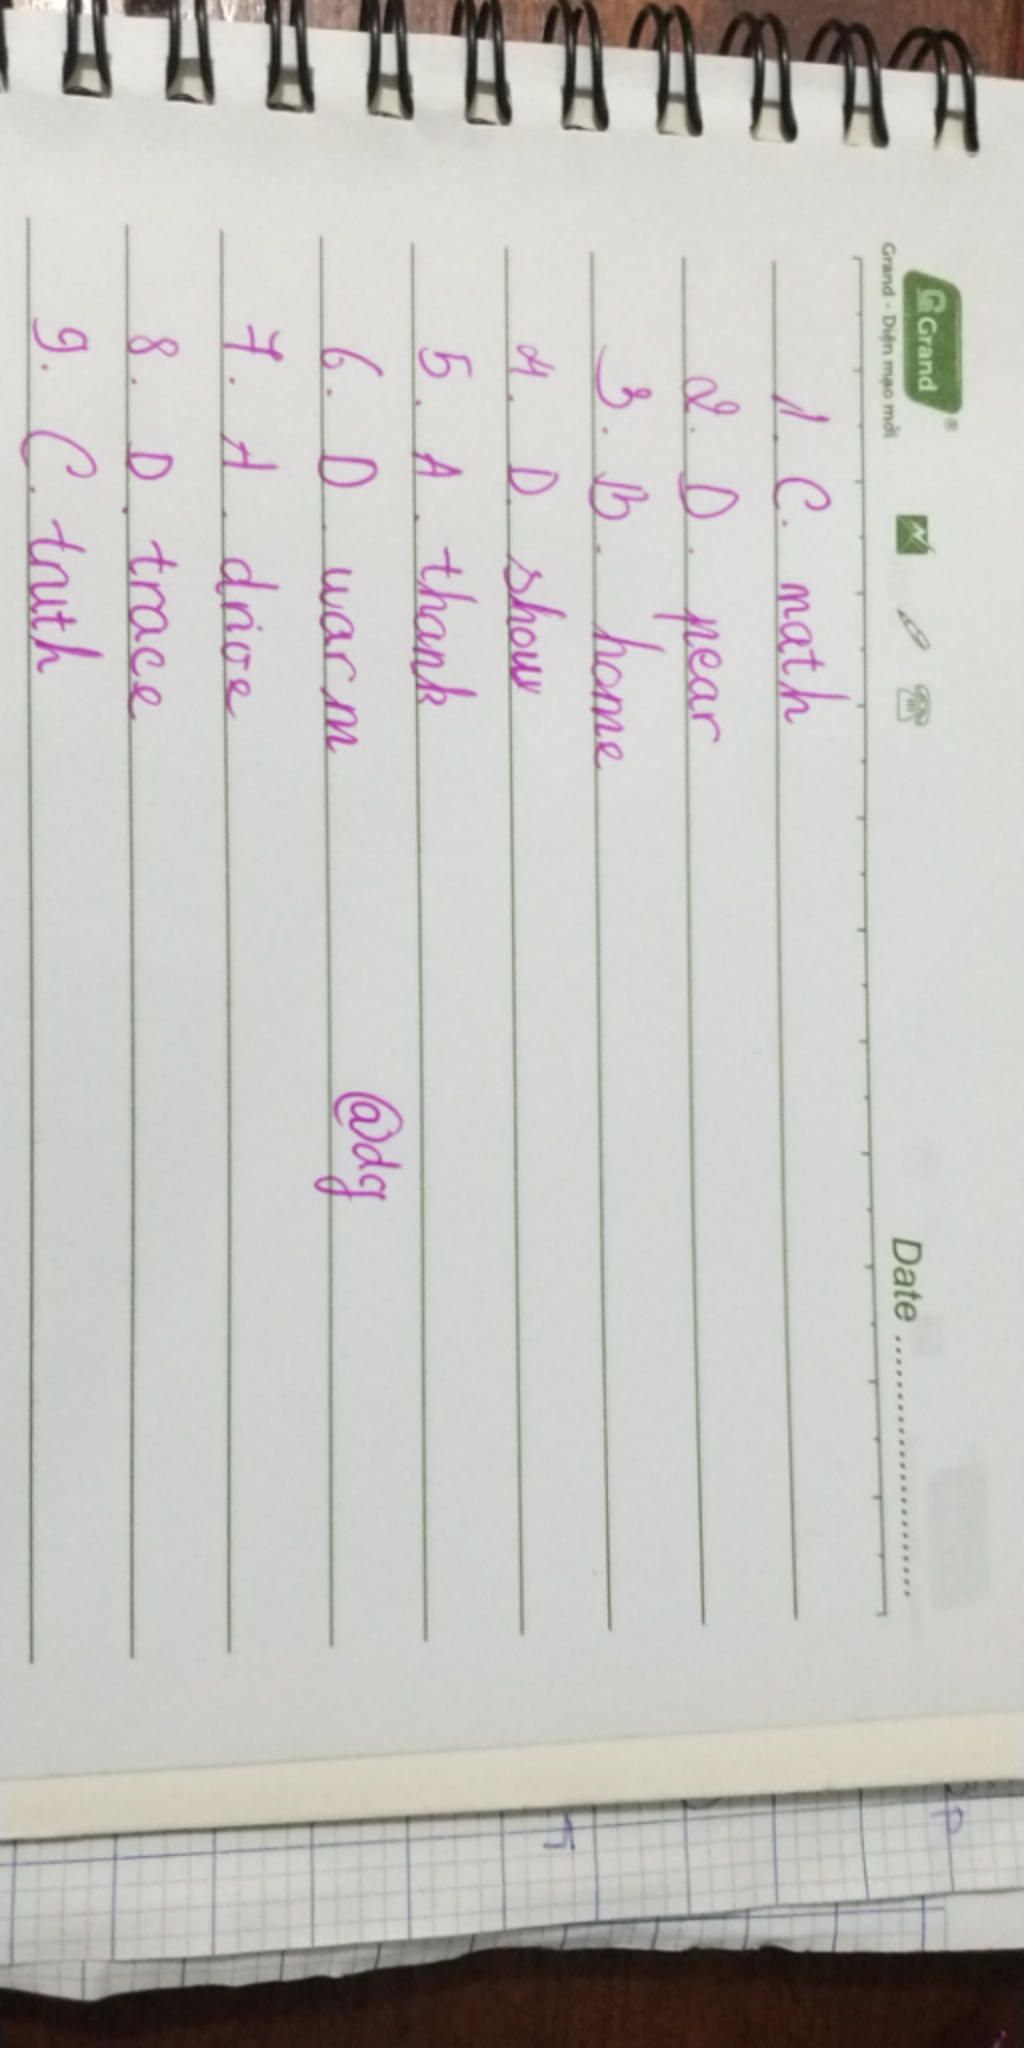 Grand
Grand - Diện mạo mới
Date
1. C. math
2. D. pear
3. B. home
4. D. show
5. A. thank
6. D. warm
@dg
7. A. drive
8. D. trace
9. C. truth